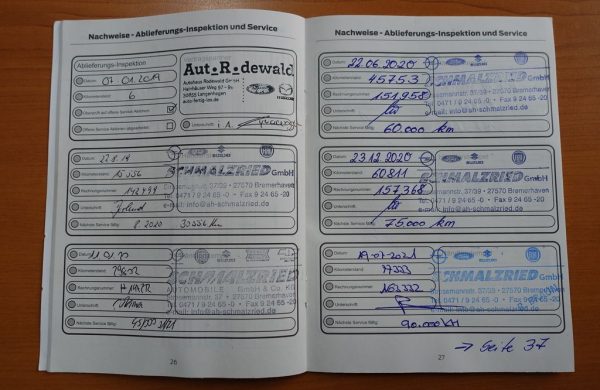 Nachweise - Ablieferungs-Inspektion und Service
Ablieferungs-Inspektion
Datum 07 01.2019
Kilometerstand 6
Übersicht auf offene Service Aktionen
Offene Service Aktionen abgearbeitet
Vertragspartner
Aut.Rodewald
Autohaus Rodewald GmbH
Hainhäuser Weg 97 - 9a
30855 Langenhagen
auto-fertig-los.de
Unterschrift i. A.
Datum 22.8.19
Kilometerstand 15 356
Rechnungsnummer
Unterschrift
Nächste Service fällig: 8 2020 30356 Km
SUZUKI
SCHMALZRIED
GmbH
37/39 • 27570 Bremerhaven
Tel. 0471 / 9 24 65 -0 • Fax 9 24 65 -20
E-mail: info@ah-schmalzried.de
Datum
Kilometerstand
Rechnungsnummer
Unterschrift
Nächste Service fällig: 45000
SUZUKI
SCHMALZRIED
AUTOMOBILE GmbH & Co. KG
37/39 • 27570 Bremerhaven
Tel. 0471 / 9 24 65 -0 • Fax 9 24 65 -20
E-mail: info@ah-schmalzried.de
26
Nachweise - Ablieferungs-Inspektion und Service
Datum 22.06.2020
Kilometerstand 45753
Rechnungsnummer 151.958
Unterschrift
Nächste Service fällig: 60.000 km
SUZUKI
SCHMALZRIED
GmbH
37/39 • 27570 Bremerhaven
Tel. 0471 / 9 24 65 -0 • Fax 9 24 65 -20
E-mail: info@ah-schmalzried.de
Datum 23.12.2020
Kilometerstand 60811
Rechnungsnummer 157.368
Unterschrift
Nächste Service fällig: 75000 km
SUZUKI
SCHMALZRIED
GmbH
37/39 • 27570 Bremerhaven
Tel. 0471 / 9 24 65 -0 • Fax 9 24 65 -20
E-mail: info@ah-schmalzried.de
Datum 19.07.2021
Kilometerstand
Rechnungsnummer
Unterschrift
Nächste Service fällig: 90.000 KM
SUZUKI
SCHMALZRIED
GmbH
37/39 • 27570 Bremerhaven
Tel. 0471 / 9 24 65 -0 • Fax 9 24 65 -20
E-mail: info@ah-schmalzried.de
→ Seite 37
27